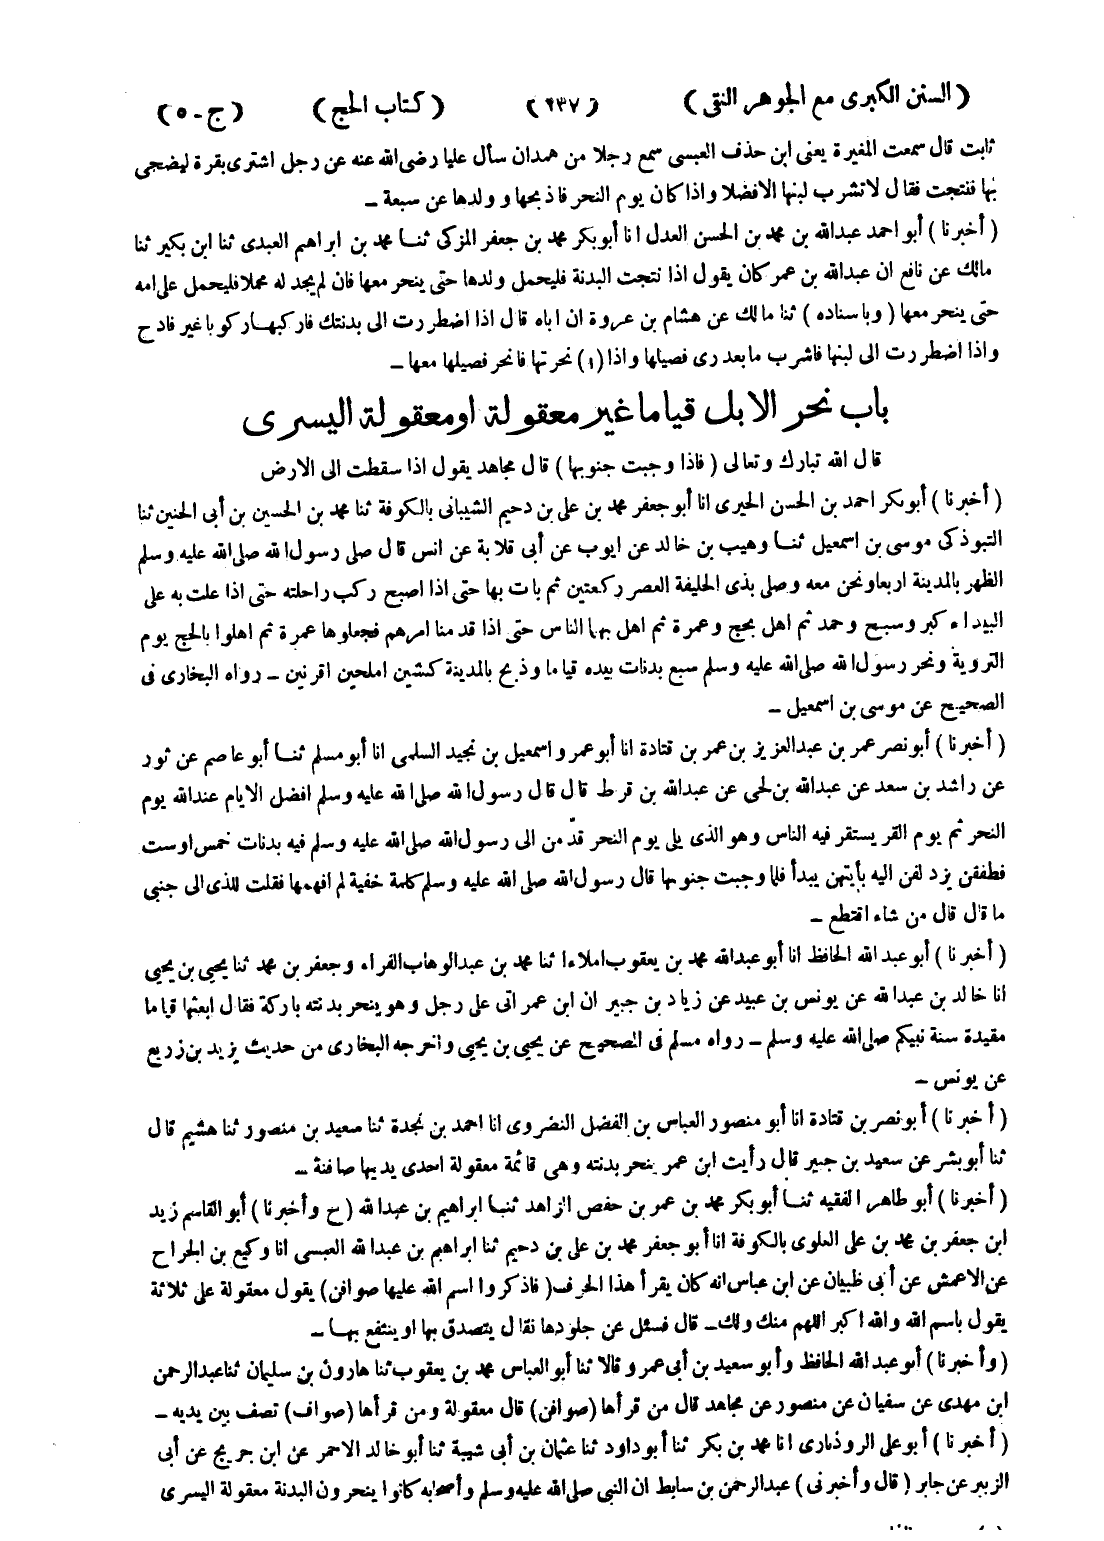 ( السنن الكبرى مع الجوهر النقى ) ( ٢٣٧ ) ( كتاب الحج ) ( ج - ٥ )
ثابت قال سمعت المغيرة يعنى ابن حذف العبسى سمع رجلا من همدان سأل عليا رضى الله عنه عن رجل اشترى بقرة ليضحى
بها فنتجت فقال لا تشرب لبنها الا فضلا واذا كان يوم النحر فاذبحها وولدها عن سبعة -
( أخبرنا ) أبو احمد عبدالله بن محمد بن الحسن العدل انا أبوبكر محمد بن جعفر المزكى ثنا محمد بن ابراهيم العبدى ثنا ابن بكير ثنا
مالك عن نافع ان عبدالله بن عمر كان يقول اذا نتجت البدنة فليحمل ولدها حتى ينحر معها فان لم يجد له محملا فليحمل على امه
حتى ينحر معها ( وباسناده ) ثنا مالك عن هشام بن عروة ان اباه قال اذا اضطررت الى بدنتك فاركبها ركوبا غير فادح
واذا اضطررت الى لبنها فاشرب ما بعد رى فصيلها واذا (١) نحرتها فانحر فصيلها معها -
باب نحر الابل قياما غير معقولة او معقولة اليسرى
قال الله تبارك وتعالى ( فاذا وجبت جنوبها ) قال مجاهد يقول اذا سقطت الى الارض
( أخبرنا ) أبوبكر احمد بن الحسن الحيرى انا أبو جعفر محمد بن على بن دحيم الشيبانى بالكوفة ثنا محمد بن الحسين بن أبى الحنين ثنا
التبوذكى موسى بن اسمعيل ثنا وهيب بن خالد عن ايوب عن أبى قلابة عن انس قال صلى رسول الله صلى الله عليه وسلم
الظهر بالمدينة اربعا ونحن معه وصلى بذى الحليفة العصر ركعتين ثم بات بها حتى اذا اصبح ركب راحلته حتى اذا علت به على
البيداء كبر وسبح وحمد ثم اهل بحج وعمرة ثم اهل بهما الناس حتى اذا قدمنا امرهم فجعلوها عمرة ثم اهلوا بالحج يوم
التروية ونحر رسول الله صلى الله عليه وسلم سبع بدنات بيده قياما وذبح بالمدينة كبشين املحين اقرنين - رواه البخارى فى
الصحيح عن موسى بن اسمعيل -
( أخبرنا ) أبو نصر عمر بن عبدالعزيز بن عمر بن قتادة انا أبو عمرو اسمعيل بن نجيد السلمى انا أبو مسلم ثنا أبو عاصم عن ثور
عن راشد بن سعد عن عبدالله بن لحى عن عبدالله بن قرط قال قال رسول الله صلى الله عليه وسلم افضل الايام عند الله يوم
النحر ثم يوم القر يستقر فيه الناس وهو الذى يلى يوم النحر قدّ من الى رسول الله صلى الله عليه وسلم فيه بدنات خمس او ست
فطفقن يزدلفن اليه بأيتهن يبدأ فلما وجبت جنوبها قال رسول الله صلى الله عليه وسلم كلمة خفية لم افهمها فقلت للذى الى جنبى
ما قال قال من شاء اقتطع -
( أخبرنا ) أبو عبد الله الحافظ انا أبو عبدالله محمد بن يعقوب املاءا ثنا محمد بن عبدالوهاب الفراء وجعفر بن محمد ثنا يحيى بن يحيى
انا خالد بن عبدالله عن يونس بن عبيد عن زياد بن جبير ان ابن عمر اتى على رجل وهو ينحر بدنته باركة فقال ابعثها قياما
مقيدة سنة نبيكم صلى الله عليه وسلم - رواه مسلم فى الصحيح عن يحيى بن يحيى واخرجه البخارى من حديث يزيد بن زريع
عن يونس -
( أخبرنا ) أبو نصر بن قتادة انا أبو منصور العباس بن الفضل النضروى انا احمد بن نجدة ثنا سعيد بن منصور ثنا هشيم قال
ثنا أبو بشر عن سعيد بن جبير قال رأيت ابن عمر ينحر بدنته وهى قائمة معقولة احدى يديها صافنة -
( أخبرنا ) أبو طاهر الفقيه ثنا أبو بكر محمد بن عمر بن حفص الزاهد ثنا ابراهيم بن عبدالله ( ح وأخبرنا ) أبو القاسم زيد
ابن جعفر بن محمد بن على العلوى بالكوفة انا أبو جعفر محمد بن على بن دحيم ثنا ابراهيم بن عبدالله العبسى انا وكيع بن الجراح
عن الاعمش عن أبى ظبيان عن ابن عباس انه كان يقرأ هذا الحرف ( فاذكروا اسم الله عليها صوافن ) يقول معقولة على ثلاثة
يقول باسم الله والله اكبر اللهم منك ولك - قال فسئل عن جلودها فقال يتصدق بها او ينتفع بها -
( وأخبرنا ) أبو عبد الله الحافظ وأبو سعيد بن أبى عمرو قالا ثنا أبو العباس محمد بن يعقوب ثنا هارون بن سليمان ثنا عبدالرحمن
ابن مهدى عن سفيان عن منصور عن مجاهد قال من قرأها (صوافن) قال معقولة ومن قرأها (صواف) تصف بين يديه -
( أخبرنا ) أبو على الروذبارى انا محمد بن بكر ثنا أبو داود ثنا عثمان بن أبى شيبة ثنا أبو خالد الاحمر عن ابن جريج عن أبى
الزبير عن جابر ( قال وأخبرنى ) عبدالرحمن بن سابط ان النبى صلى الله عليه وسلم وأصحابه كانوا ينحرون البدنة معقولة اليسرى